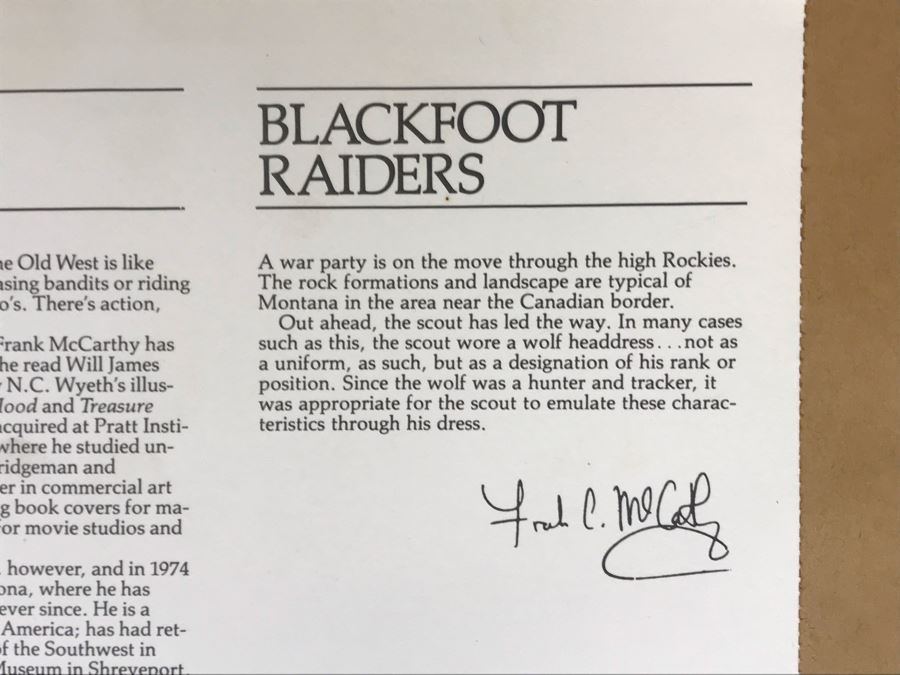 ne Old West is like
asing bandits or riding
o's. There's action,
Frank McCarthy has
he read Will James
N.C. Wyeth's illus-
lood and Treasure
acquired at Pratt Insti-
where he studied un-
ridgeman and
er in commercial art
g book covers for ma-
or movie studios and
. however, and in 1974
ona, where he has
ever since. He is a
America; has had ret-
of the Southwest in
Museum in Shreveport,
BLACKFOOT
RAIDERS
A war party is on the move through the high Rockies.
The rock formations and landscape are typical of
Montana in the area near the Canadian border.
Out ahead, the scout has led the way. In many cases
such as this, the scout wore a wolf headdress...not as
a uniform, as such, but as a designation of his rank or
position. Since the wolf was a hunter and tracker, it
was appropriate for the scout to emulate these charac-
teristics through his dress.
Frank C. McCarthy